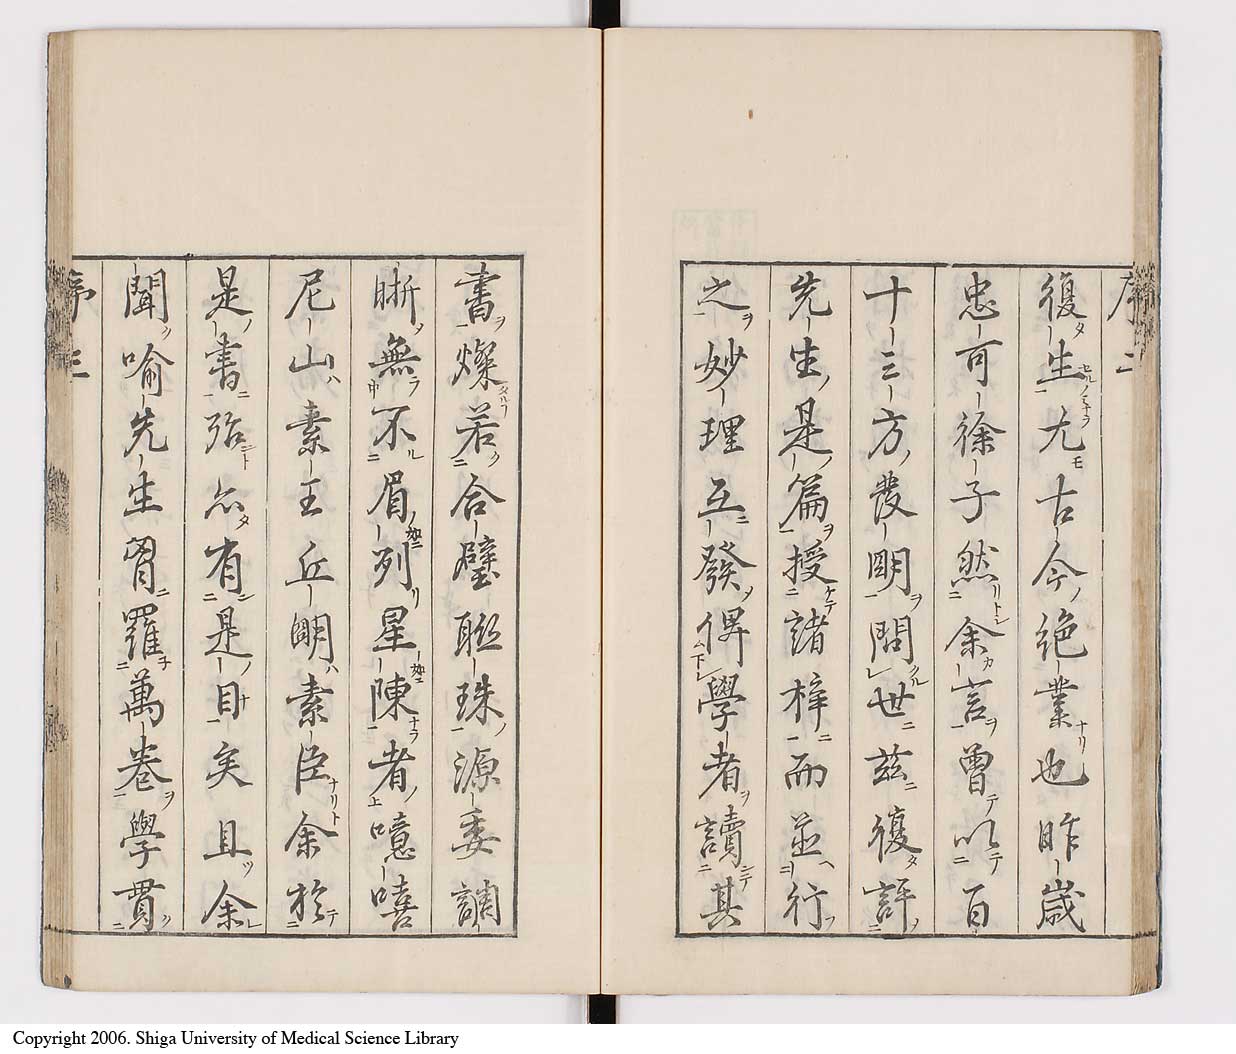 序二
復生尤古今絶業也昨歳
忠可徐子然余言曽以百
十三方發明問世茲復評
先生是篇授諸梓而並行
之妙理互發俾學者讀其
書燦若合璧聯珠源委調
晰無不眉列星陳者噫嘻
尼山素王丘明素臣余於
是書殆亦有是目矣且余
聞喻先生胷羅萬卷學貫
序三
Copyright 2006. Shiga University of Medical Science Library